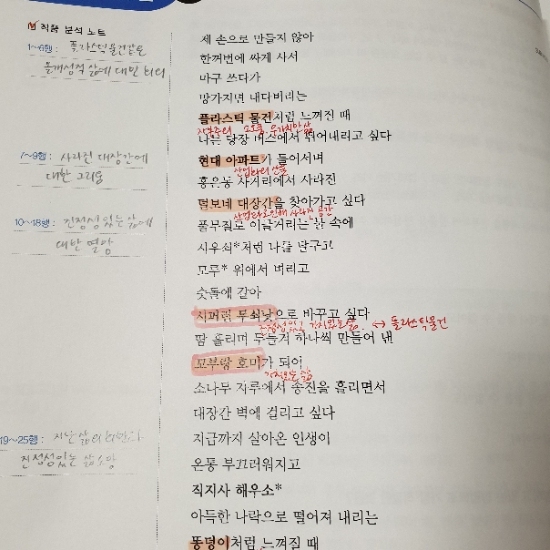 작품 분석 노트
1~6행 : 플라스틱 물건같은
몰개성적 삶에 대한 비판
7~9행 : 사라진 대장간에
대한 그리움
10~18행 : 진정성 있는 삶에
대한 열망
19~25행 : 지난 삶의 반성과
진정성있는 삶 소망
제 손으로 만들지 않아
한꺼번에 싸게 사서
마구 쓰다가
망가지면 내다버리는
플라스틱 물건처럼 느껴질 때
나는 당장 버스에서 뛰어내리고 싶다
현대 아파트가 들어서며
산업화의 산물
홍은동 사거리에서 사라진
털보네 대장간을 찾아가고 싶다
산업화로 인해 사라진 공간
풀무질로 이글거리는 불 속에
시우쇠*처럼 나를 달구고
모루* 위에서 벼리고
숫돌에 갈아
시퍼런 무쇠낫으로 바꾸고 싶다
↔ 플라스틱물건
땀 흘리며 두들겨 하나씩 만들어 낸
꼬부랑 호미가 되어
소나무 자루에서 송진을 흘리면서
대장간 벽에 걸리고 싶다
지금까지 살아온 인생이
온통 부끄러워지고
직지사 해우소*
아득한 나락으로 떨어져 내리는
똥덩이처럼 느껴질 때